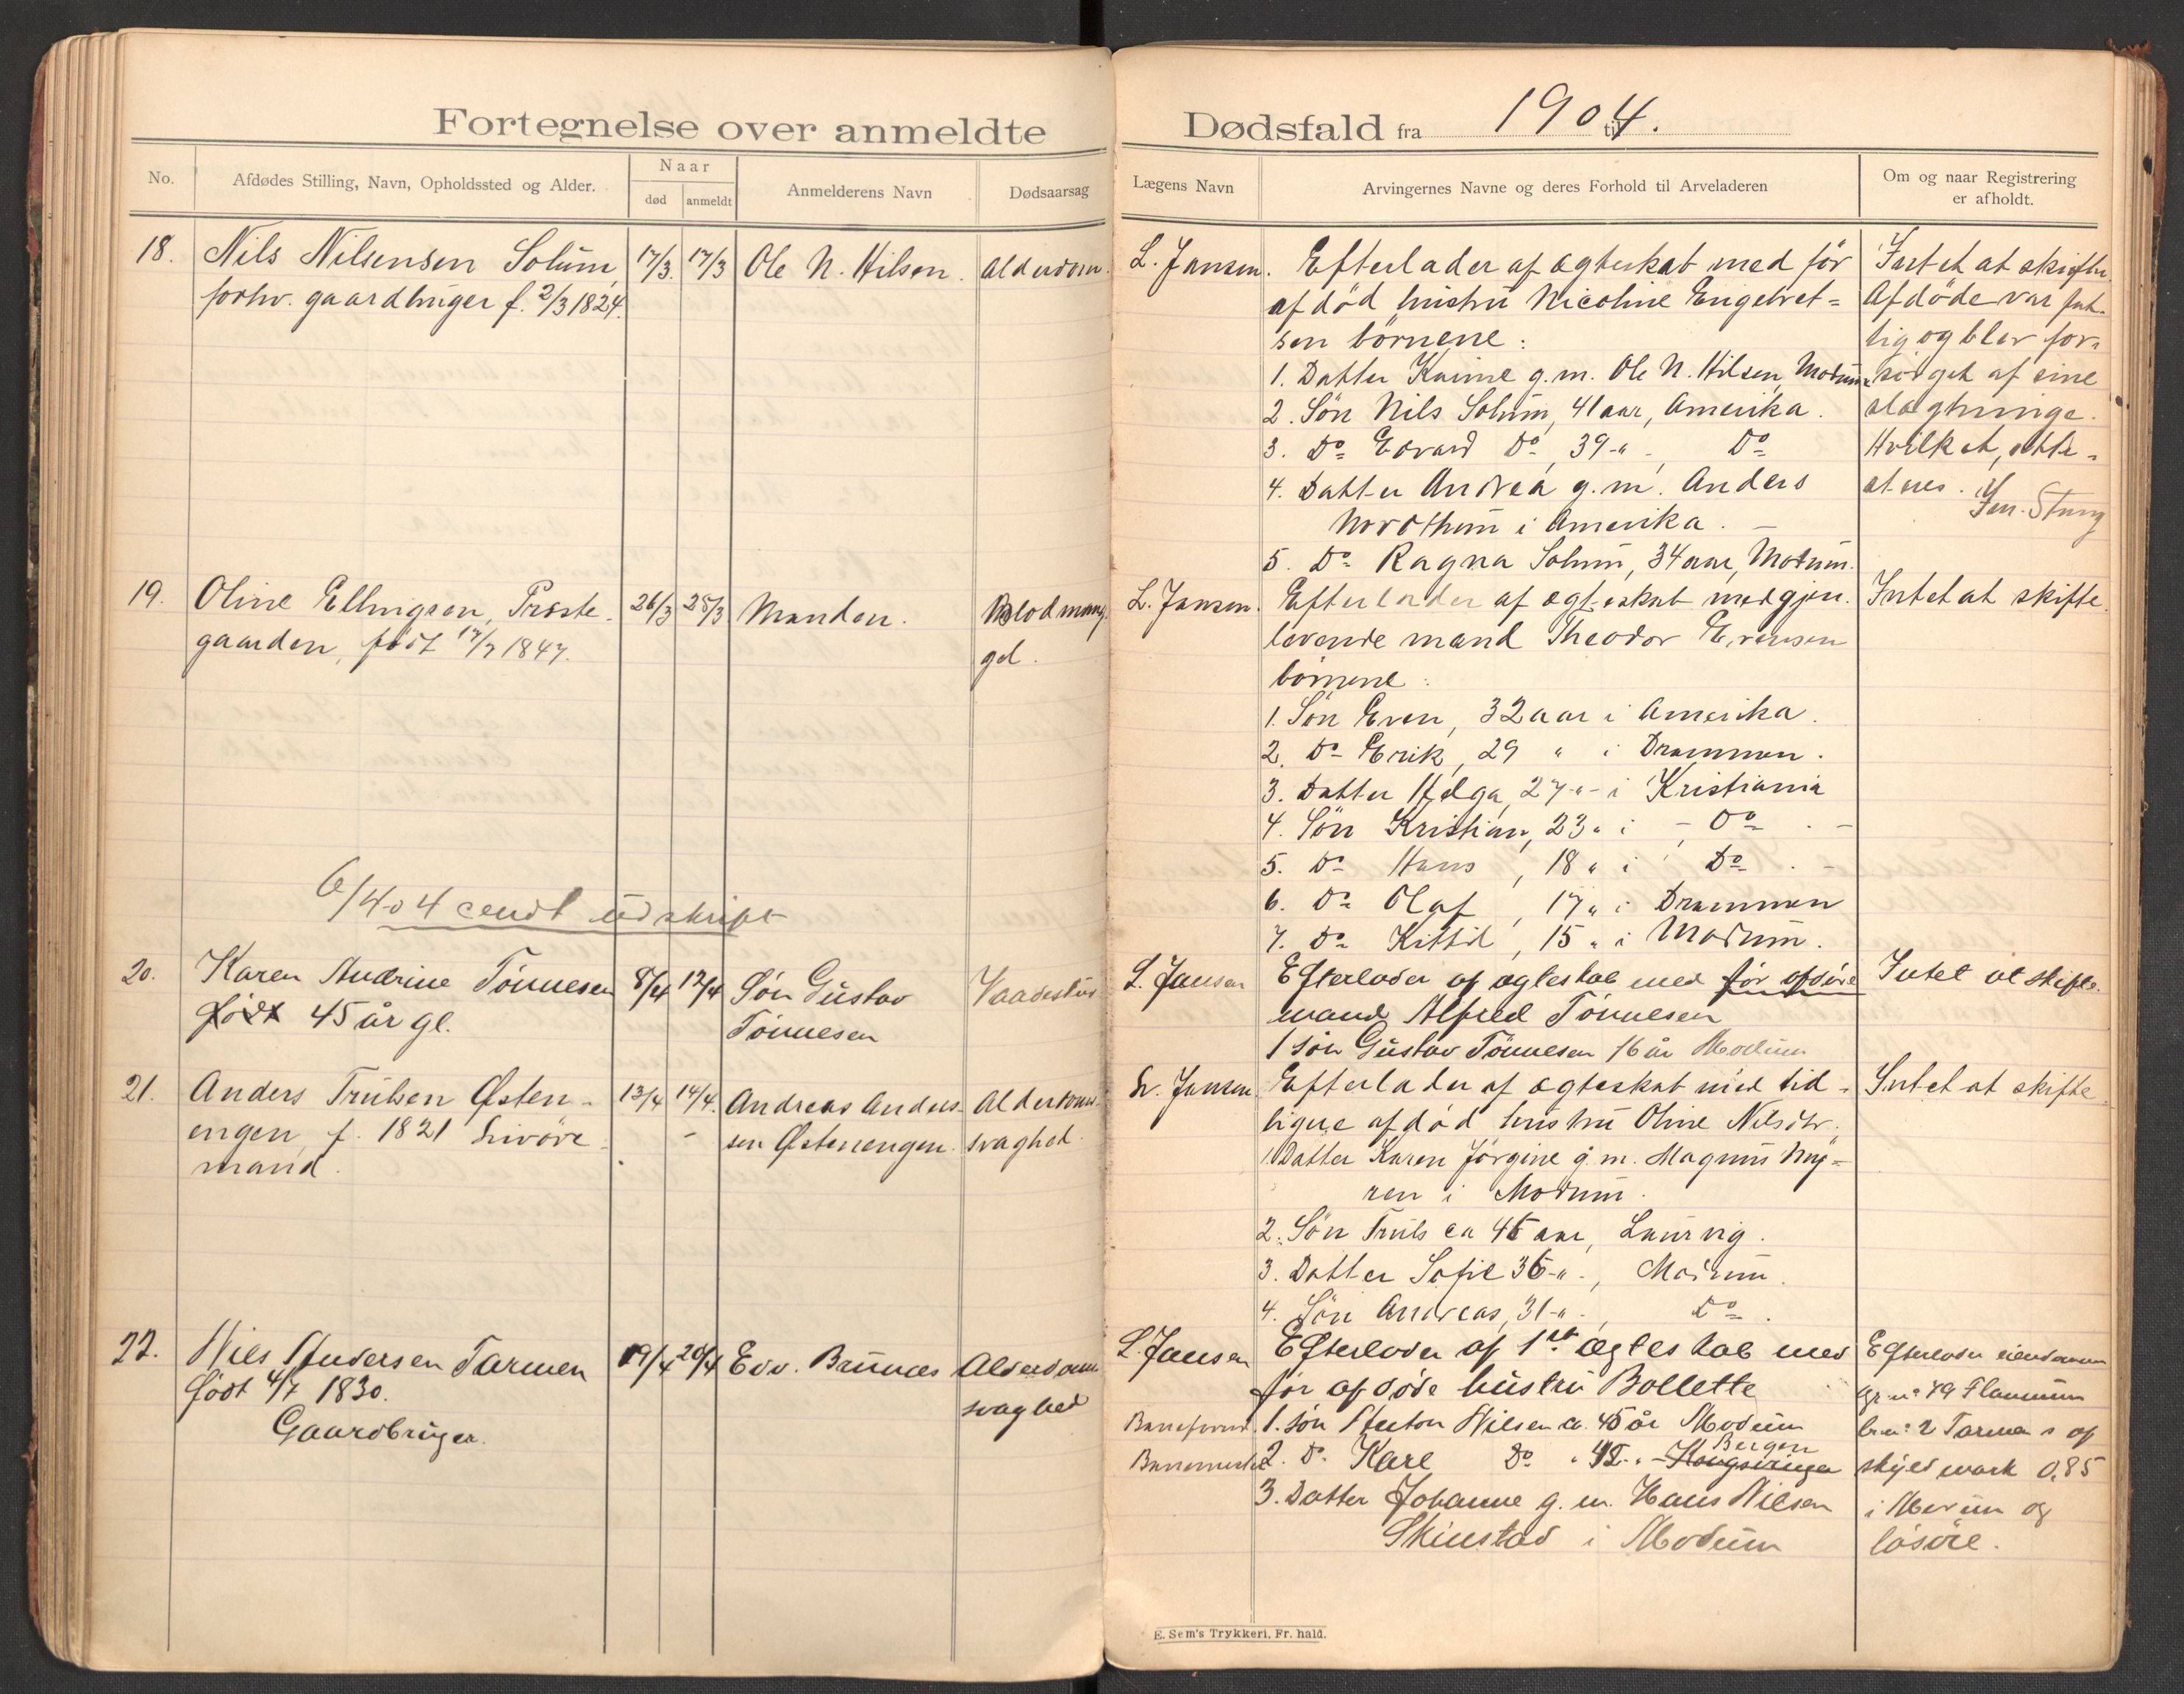 Fortegnelse over anmeldte
No.
Afdødes Stilling, Navn, Opholdssted og Alder.
Naar
død
anmeldt
Anmelderens Navn
Dødsaarsag
18. Nils Nilsensen Solum 17/3 17/3 Ole N. Hilsen. Alderdom.
forhv. gaardbruger f. 2/3 1824.
19. Oline Ellingsen, Præste- 26/3 28/3 Manden. Blodmang-
gaarden, født 17/7 1847. gel.
6/4 04 sendt udskrift
20. Karen Andrine Tönnesen 8/4 12/4 Sön Gustav Vaadeskud
født 45 år gl. Tönnesen
21. Anders Trulsen Østen- 13/4 14/4. Andreas Anders- Alderdoms-
engen, f. 1821 Livöre- sen Østenengen. svaghed.
mand.
22. Nils Andersen Tarmen 19/4 20/4 Edv. Braunæs Alderdoms
født 4/7 1830. svaghed
Gaardbruger.
Dødsfald fra 1904. til
Lægens Navn
Arvingernes Navne og deres Forhold til Arveladeren
Om og naar Registrering
er afholdt.
L. Jansen. Efterlader af ægteskab med för Intet at skifte.
afdöd hustru Nicoline Engebret- Afdöde var fat-
sen börnene: tig og blev for-
1. Datter Karine g.m. Ole N. Hilsen, Modum. sörget af sine
2. Sön Nils Solum, 41 aar, Amerika. slægtninge.
3. Do Edvard Do, 39 -"- , Do Hvilket, atte-
4. Datter Andrea g.m. Anders steres.
Nordthum i Amerika. –
5. Do Ragna Solum, 34 aar, Modum.
L. Jansen. Efterlader af ægteskab med gjen- Intet at skifte.
levende mand Theodor Evensen
börnene:
1. Sön Even, 32 aar i Amerika.
2. Do Erik, 29 " i Drammen.
3. Datter Helga, 27 -"- i Kristiania
4. Sön Kristian, 23 " i – Do . –
5. Do Hans, 18 " i Do . –
6. Do Olaf, 17 " i Drammen
7. Do Kittil, 15 " i Modum.
L. Jansen Efterlader af ægteskab med för afdöde Intet at skifte.
mand Alfred Tönnesen
1 sön Gustav Tönnesen 16 år Modum
L. Jansen Efterlader af ægteskab med tid- Intet at skifte.
ligere afdöd hustru Oline Nilsdtr.
1. Datter Karen Jörgine g.m. Magnus Myh-
ren i Modum.
2. Sön Truls ca 45 aar, Laurvig.
3. Datter Sofie 36 -"-, Modum.
4. Sön Andreas, 31 -"-, Do.
L. Jansen Efterlader af 1ste ægteskab med Efterlader eiendommen
för afdöde hustru Bollette gr. no 49 Flannum
Baneformd. 1. sön Anton Nilsen ca. 45 år Modum br. no: 2 Tarmen af
Banemester 2. Do Karl Do " 42 -"- Kongsvinger Bergen skyld mark 0,85
3. Datter Johanne g.m. Hans Nilsen i Modum og
Skinstad i Modum lösöre.
E. Sem's Trykkeri, Fr. hald.